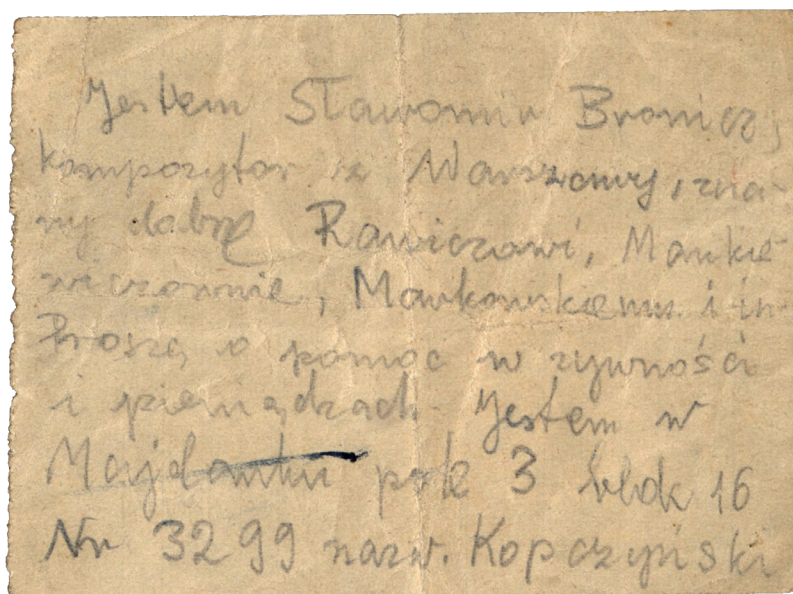 Jestem Sławomir Bronicz,
kompozytor z Warszawy, zna-
ny dobrze Rawiczowi, Mankie-
wiczównie, Markowskiemu i in.
Proszę o pomoc w żywności
i pieniądzach. Jestem w
Majdanku pole 3 blok 16
Nr 3299 nazw. Kopczyński